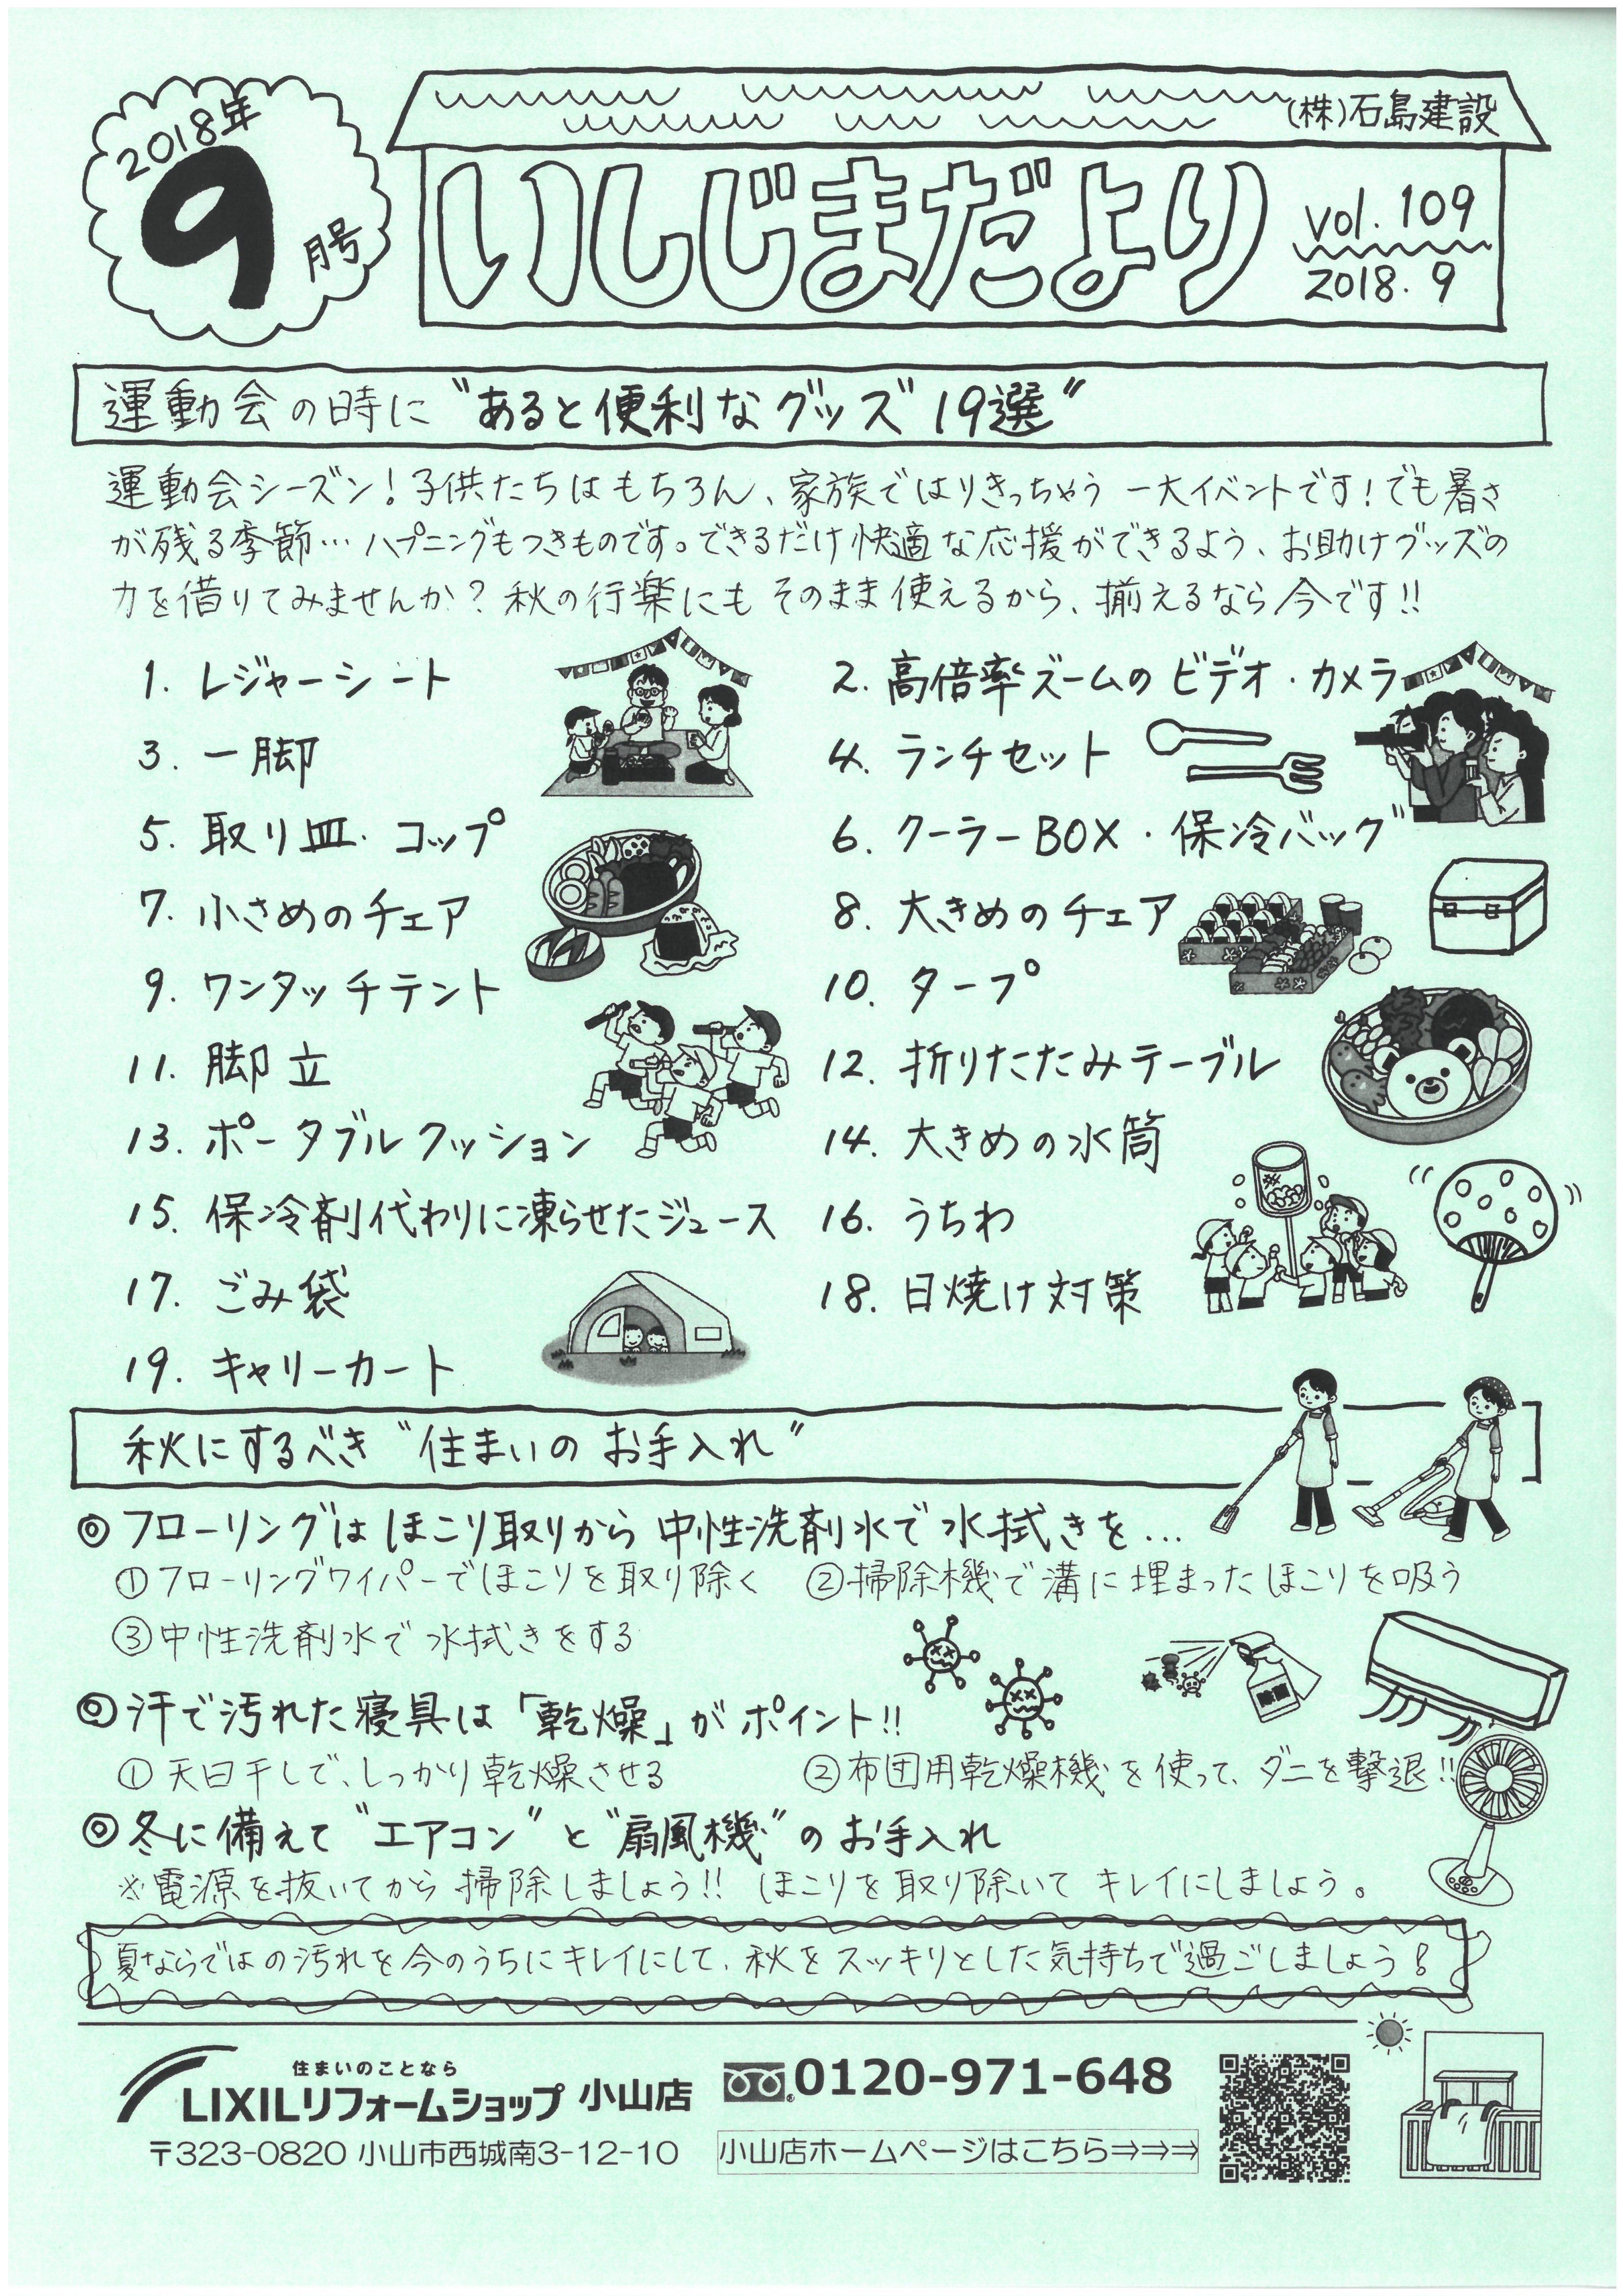 2018年
9
月号
(株)石島建設
いしじまだより
vol.109
2018.9
運動会の時に"あると便利なグッズ19選"
運動会シーズン!子供たちはもちろん、家族ではりきっちゃう一大イベントです!でも暑さ
が残る季節…ハプニングもつきものです。できるだけ快適な応援ができるよう、お助けグッズの
力を借りてみませんか?秋の行楽にもそのまま使えるから、揃えるなら今です!!
1. レジャーシート
2. 高倍率ズームのビデオ・カメラ
3. 一脚
4. ランチセット
5. 取り皿・コップ
6. クーラーBOX・保冷バッグ
7. 小さめのチェア
8. 大きめのチェア
9. ワンタッチテント
10. タープ
11. 脚立
12. 折りたたみテーブル
13. ポータブルクッション
14. 大きめの水筒
15. 保冷剤代わりに凍らせたジュース
16. うちわ
17. ごみ袋
18. 日焼け対策
19. キャリーカート
秋にするべき"住まいのお手入れ"
◎フローリングはほこり取りから中性洗剤水で水拭きを…
①フローリングワイパーでほこりを取り除く ②掃除機で溝に埋まったほこりを吸う
③中性洗剤水で水拭きをする
除菌
◎汗で汚れた寝具は「乾燥」がポイント!!
①天日干しで、しっかり乾燥させる ②布団用乾燥機を使って、ダニを撃退!!
◎冬に備えて"エアコン"と"扇風機"のお手入れ
※電源を抜いてから掃除しましょう!! ほこりを取り除いてキレイにしましょう。
夏ならではの汚れを今のうちにキレイにして、秋をスッキリとした気持ちで過ごしましょう!
住まいのことなら
LIXILリフォームショップ 小山店
0120-971-648
〒323-0820 小山市西城南3-12-10
小山店ホームページはこちら⇒⇒⇒